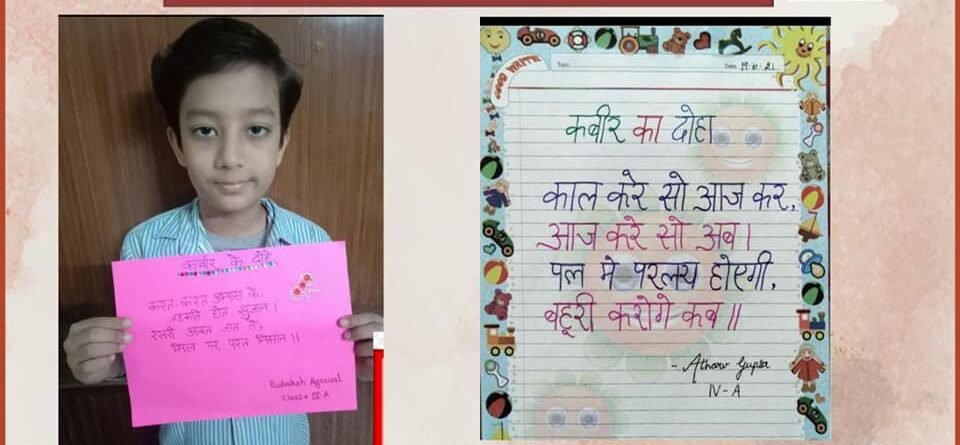 कबीर के दोहे
करत-करत अभ्यास के,
होत सुजान।
रसरी आवत जात ते,
सिल पर परत निसान।।
Rudraksh Agarwal
Class- IV-A
GOOD WRITE
Topic
Date 19.11.21
कबीर का दोहा
काल करे सो आज कर,
आज करे सो अब।
पल में परलय होएगी,
बहूरी करोगे कब॥
- Atharv Gupta
IV-A